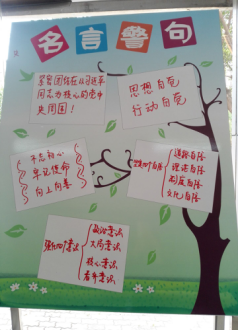 名言警句
紧密团结在以习近平
同志为核心的党中
央周围!
思想自觉
行动自觉
不忘初心
牢记使命
向上向善
四个自信
道路自信
理论自信
制度自信
文化自信
强化四个意识
政治意识
大局意识
核心意识
看齐意识